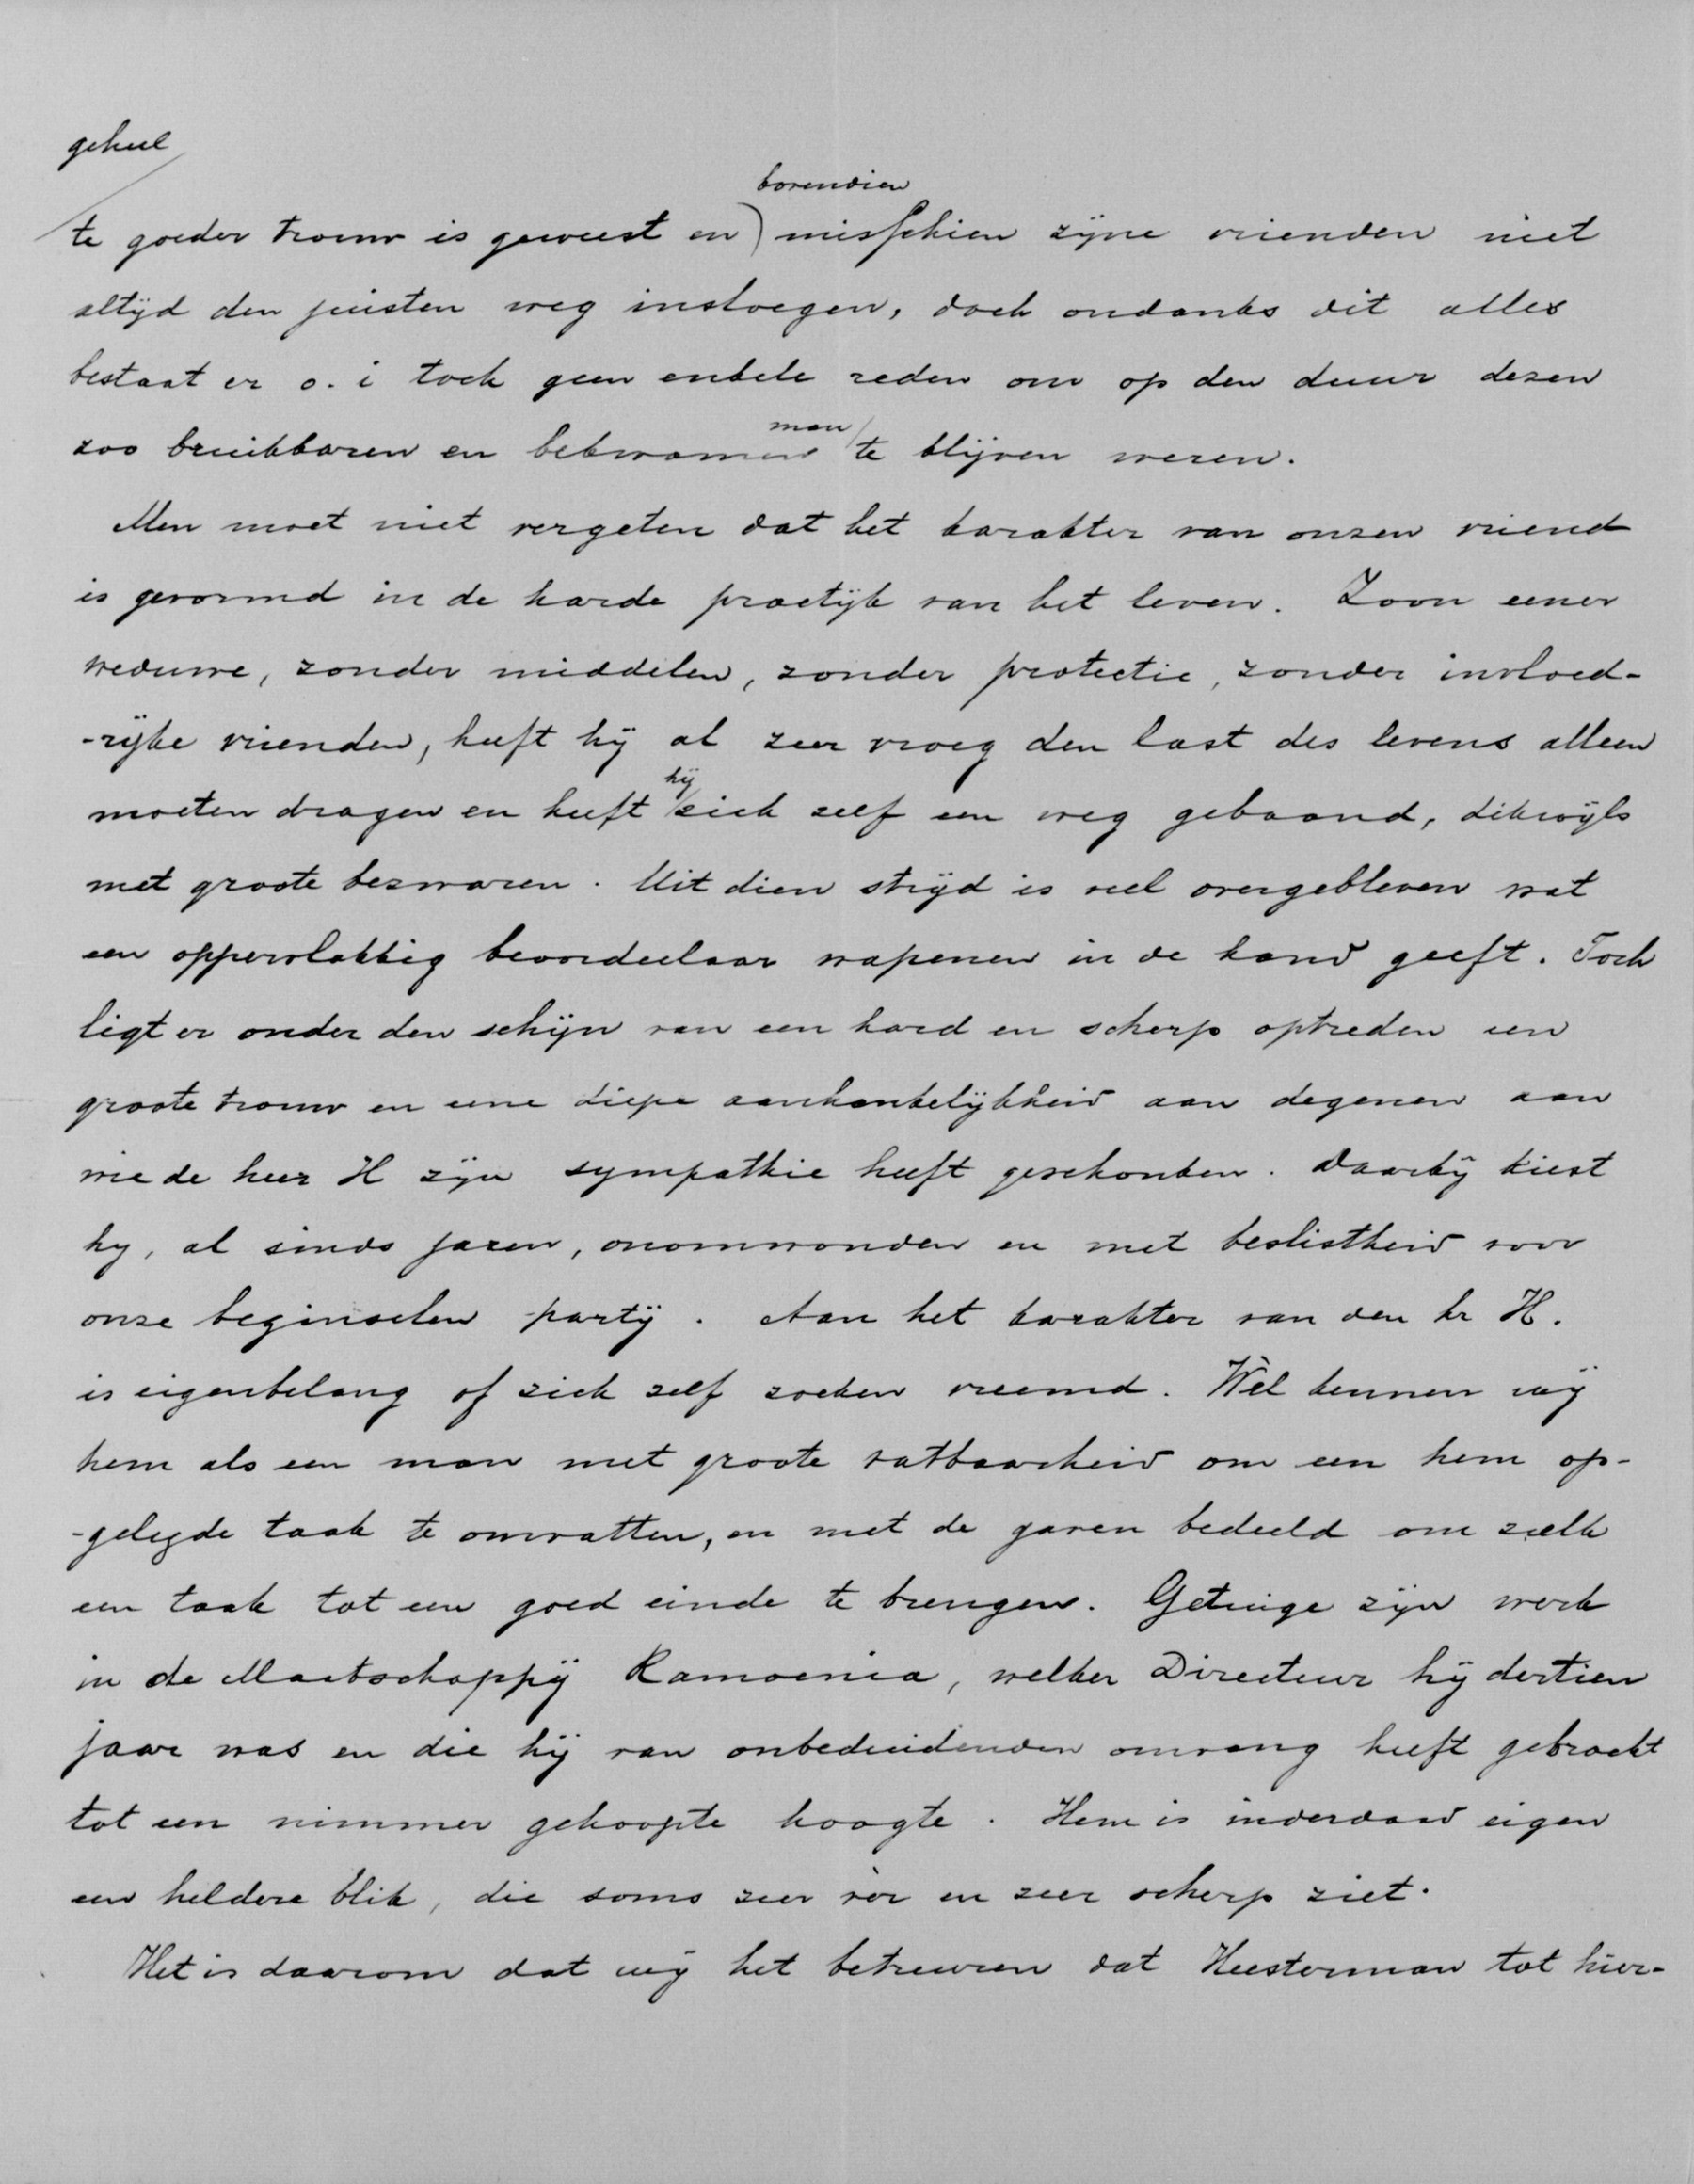 geheel
bovendien
te goeder trouw is geweest en misschien zijne vrienden niet
altijd den juisten weg insloegen, doch ondanks dit alles
bestaat er o. i toch geen enkele reden om op den duur dezen
man
zoo bruikbaren en bekwamen te blijven weren.
Men moet niet vergeten dat het karakter van onzen vriend
is gevormd in de harde practijk van het leven. Zoon eener
weduwe, zonder middelen, zonder protectie, zonder invloed-
-rijke vrienden, heeft hij al zeer vroeg den last des levens alleen
hij
moeten dragen en heeft zich zelf een weg gebaand, dikwijls
met groote bezwaren. Uit dien strijd is veel overgebleven wat
een oppervlakkig beoordeelaar wapenen in de hand geeft. Toch
ligt er onder den schijn van een hard en scherp optreden een
groote trouw en eene diepe aanhankelijkheid aan degenen aan
wie de heer H zijn sympathie heeft geschonken. Daarbij kiest
hy, al sinds jaren, onomwonden en met beslistheid voor
onze beginselen partij. Aan het karakter van den hr H.
is eigenbelang of zich zelf zoeken vreemd. Wèl kennen wij
hem als een man met groote vatbaarheid om een hem op-
-gelegde taak te omvatten, en met de gaven bedeeld om zulk
een taak tot een goed einde te brengen. Getuige zijn werk
in de Maatschappij Ramoenia, welker Directeur hij dertien
jaar was en die hij van onbeduidenden omvang heeft gebracht
tot een nimmer gehoopte hoogte. Hem is inderdaad eigen
een heldere blik, die soms zeer vèr en zeer scherp ziet.
Het is daarom dat wij het betreuren dat Heesterman tot hier-